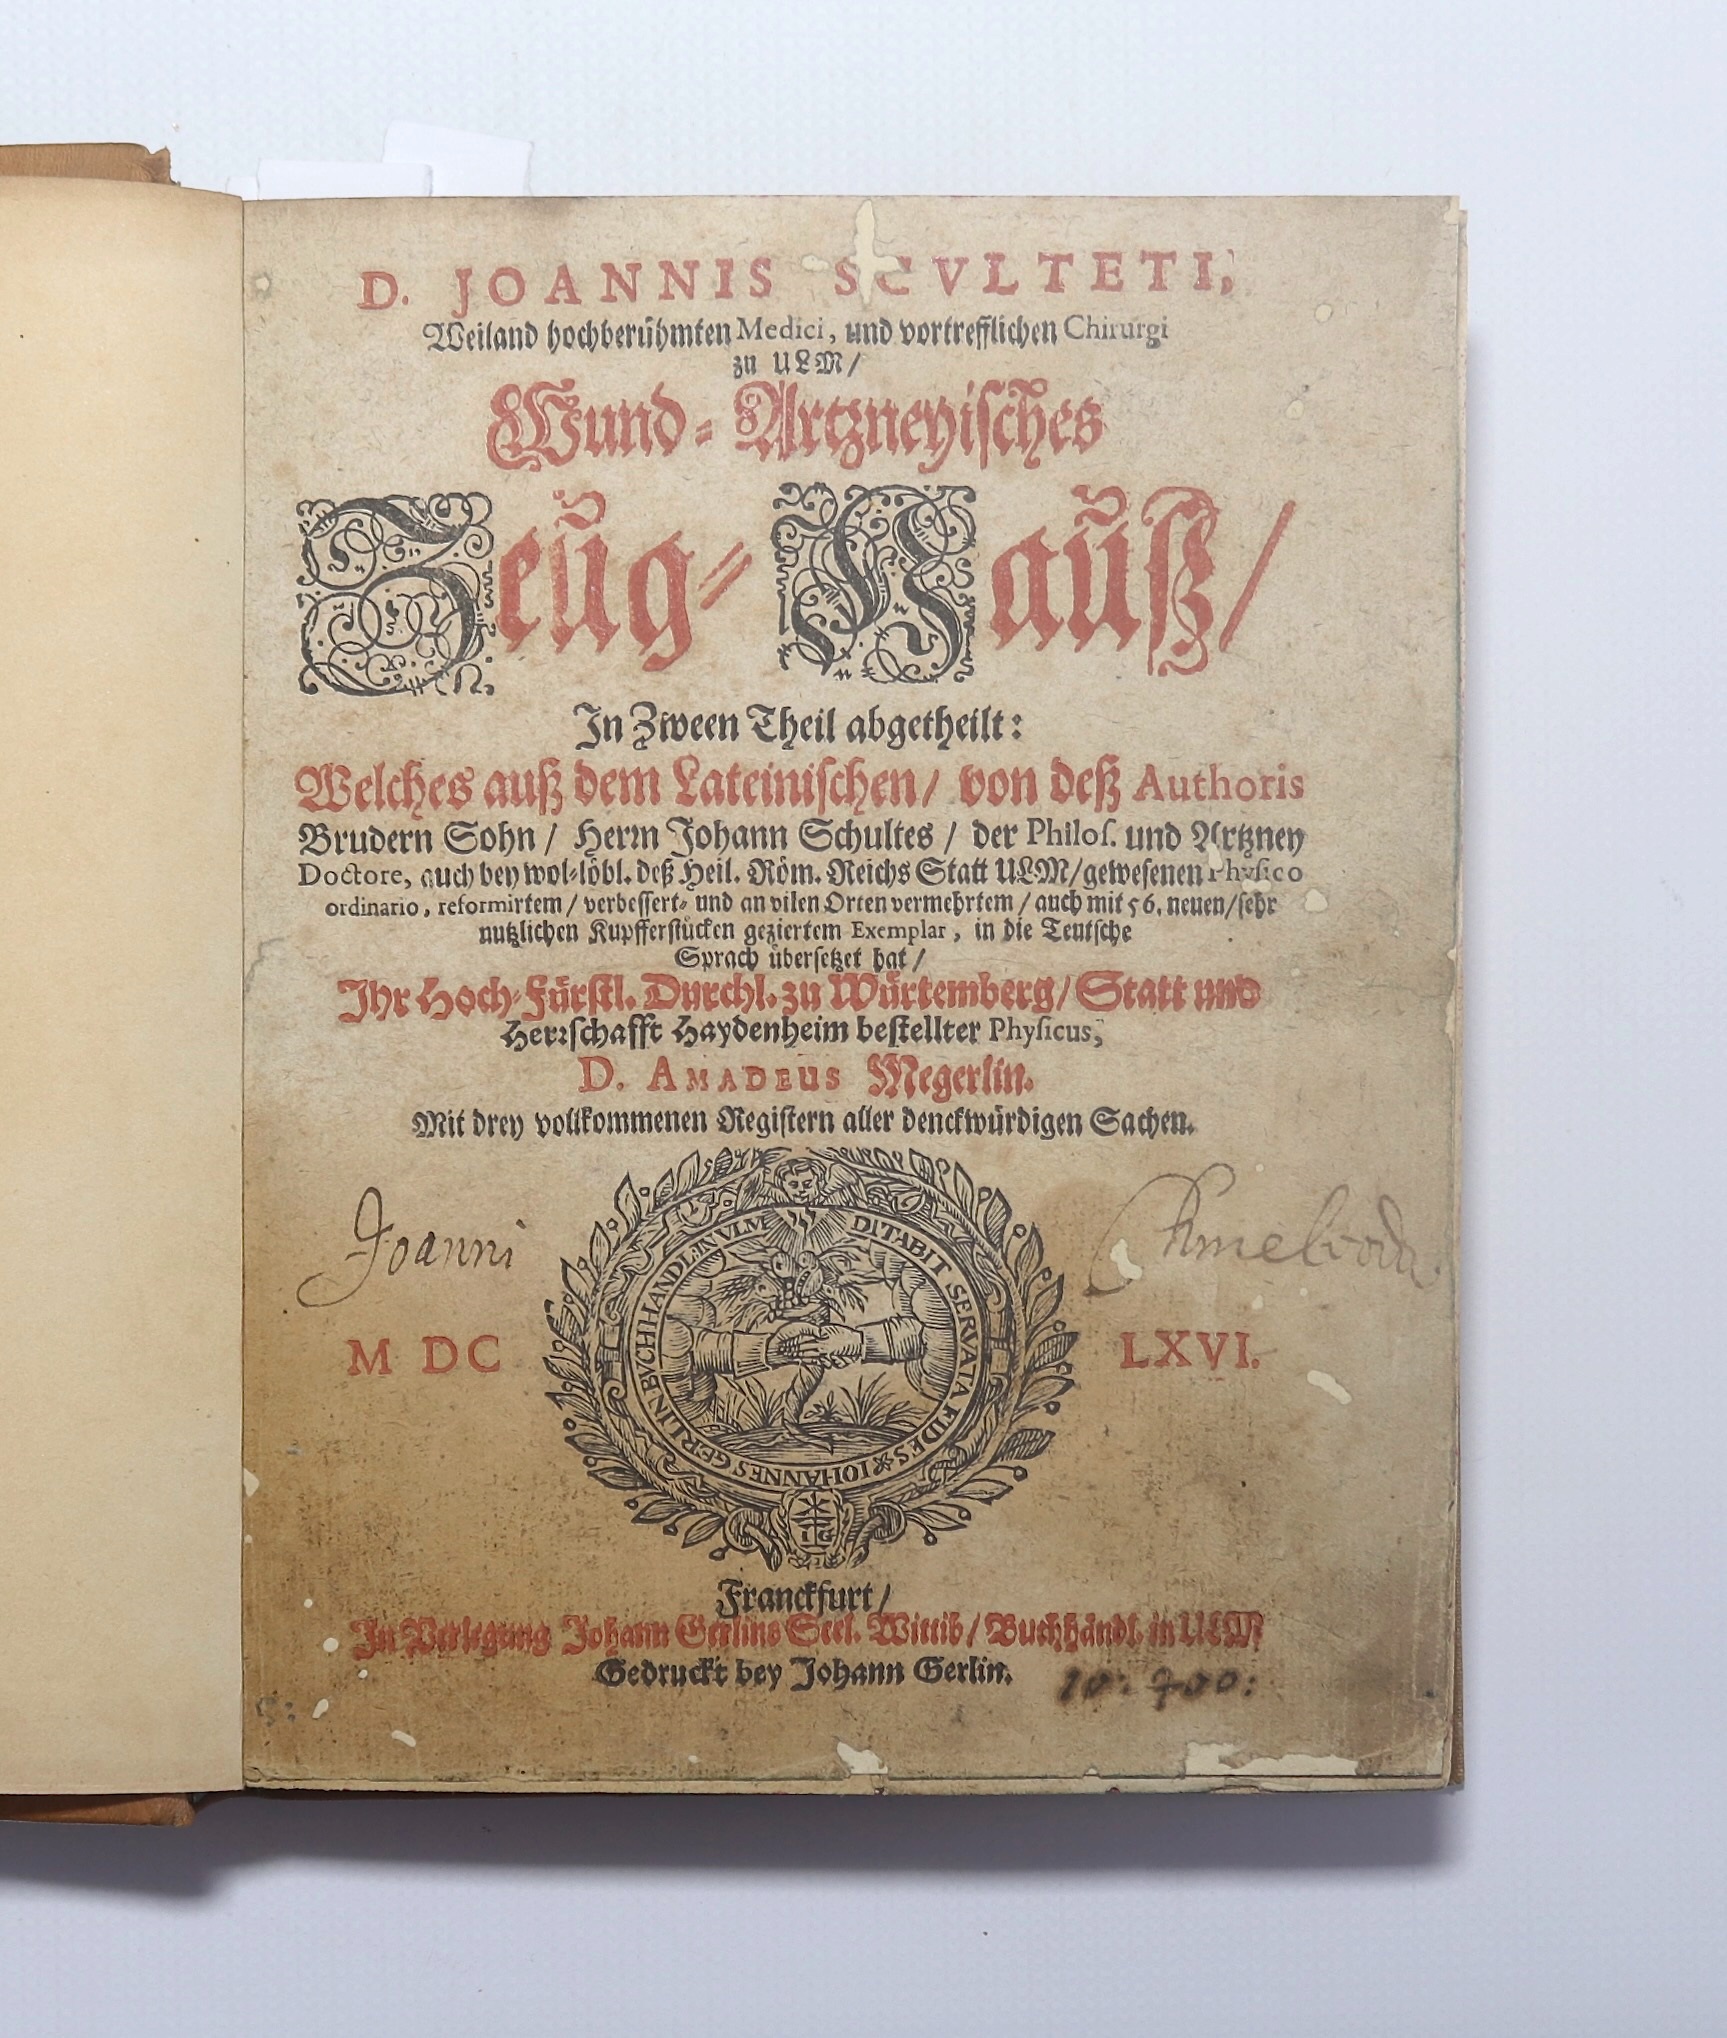 D. JOANNIS SCVLTETI,
Weiland hochberühmten Medici, und vortrefflichen Chirurgi
zu ULM/
Wund-Artzneyisches
Zeůg-Hauß/
In Zween Theil abgetheilt:
Welches auß dem Lateinischen/ von deß Authoris
Brudern Sohn/ Herrn Johann Schultes/ der Philoſ. und Artzney
Doctore, auch bey wol-löbl. deß Heil. Röm. Reichs Statt ULM/ gewesenen Physico
ordinario, reformirtem/ verbessert- und an vilen Orten vermehrtem/ auch mit 56. neuen/ sehr
nutzlichen Kupfferstücken geziertem Exemplar, in die Teutsche
Sprach übersetzet hat/
Ihr Hoch-Fürstl. Durchl. zu Würtemberg/ Statt und
Herrschafft Haydenheim bestellter Physicus,
D. AMADEUS Megerlin.
Mit drey vollkommenen Registern aller denckwürdigen Sachen.
DITABIT SERVATA FIDES * IOHANNES GERLIN BVCHHANDL. IN VLM
Joanni
M DC LXVI.
IG
Franckfurt/
In Verlegung Johann Gerlins Seel. Wittib/ Buchhändl. in ULM
Gedruckt bey Johann Gerlin.